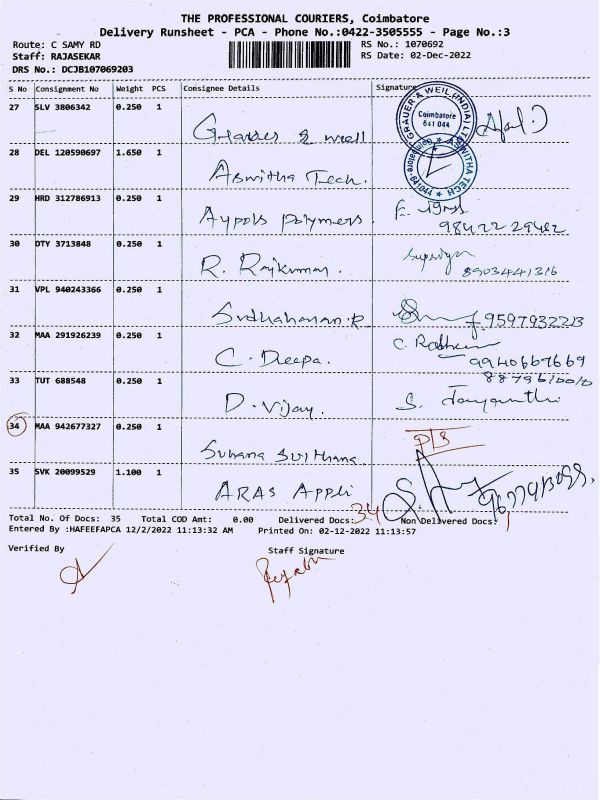 THE PROFESSIONAL COURIERS, Coimbatore
Delivery Runsheet - PCA - Phone No.:0422-3505555 - Page No.:3
Route: C SAMY RD RS No.: 1070692
Staff: RAJASEKAR RS Date: 02-Dec-2022
DRS No.: DCJB107069203
S No Consignment No Weight PCS Consignee Details Signature
27 SLV 3806342 0.250 1 & well
GRAUER & WEIL (INDIA) LTD Coimbatore 641 044
28 DEL 120590697 1.650 1 Aswitha Tech.
ASWITHA TECH Coimbatore-641044
29 HRD 312786913 0.250 1 Aypols polymers.
98422 29482
30 OTY 3713848 0.250 1 R. Rajkumar.
8903441316
31 VPL 940243366 0.250 1 R.
9597932213
32 MAA 291926239 0.250 1 C. Deepa. C.
9940667669
33 TUT 688548 0.250 1 D. Vijay. S.
34 MAA 942677327 0.250 1 Suhana D/S
35 SVK 20099529 1.100 1 ARAS Appli
Total No. Of Docs: 35 Total COD Amt: 0.00 Delivered Docs: 34 Non Delivered Docs: 1
Entered By :HAFEEFAPCA 12/2/2022 11:13:32 AM Printed On: 02-12-2022 11:13:57
Verified By Staff Signature